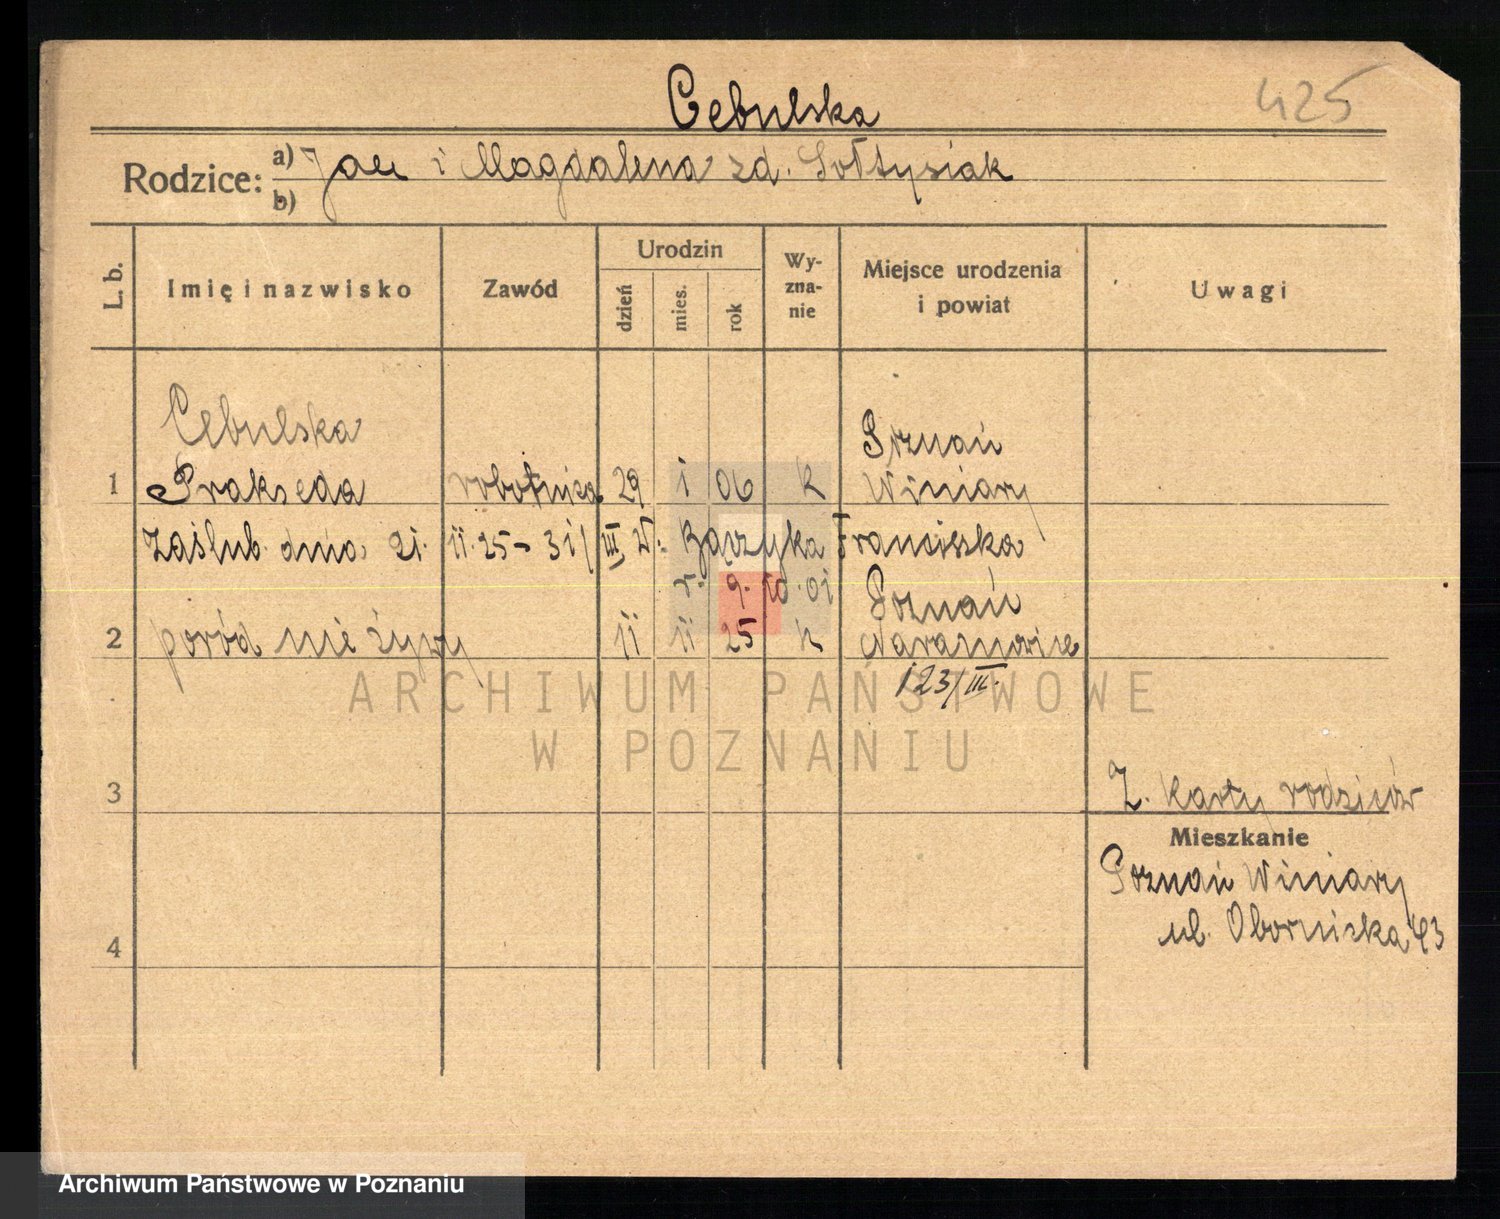 Cebulska
425
Rodzice: a) Jan i Magdalena zd. Sołtysiak
b)
L. b.
Imię i nazwisko
Zawód
Urodzin
dzień
mies.
rok
Wy-
zna-
nie
Miejsce urodzenia
i powiat
Uwagi
Cebulska
Poznań
1 Prakseda robotnica 29 i 06 k Winiary
Zaślub. dnia 21. ii. 25 - 31/III Bączyka Franciszka
r. 9. 10. 01 Poznań
2 poród nie żywy ii ii 25 k Naramowice
123/III.
ARCHIWUM PAŃSTWOWE
W POZNANIU
3
Z. karty rodziców
Mieszkanie
Poznań Winiary
ul. Obornicka 43
4
Archiwum Państwowe w Poznaniu